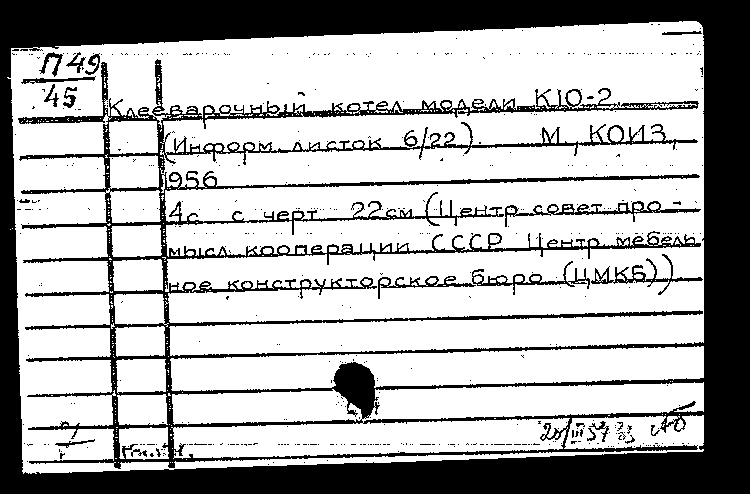 П 49
45
Клееварочный котел модели К10-2
(Информ. листок 6/22). М, КОИЗ,
1956
4с с черт 22см (Центр совет про-
мысл кооперации СССР Центр мебель
ное конструкторское бюро (ЦМКБ))
20/III 57